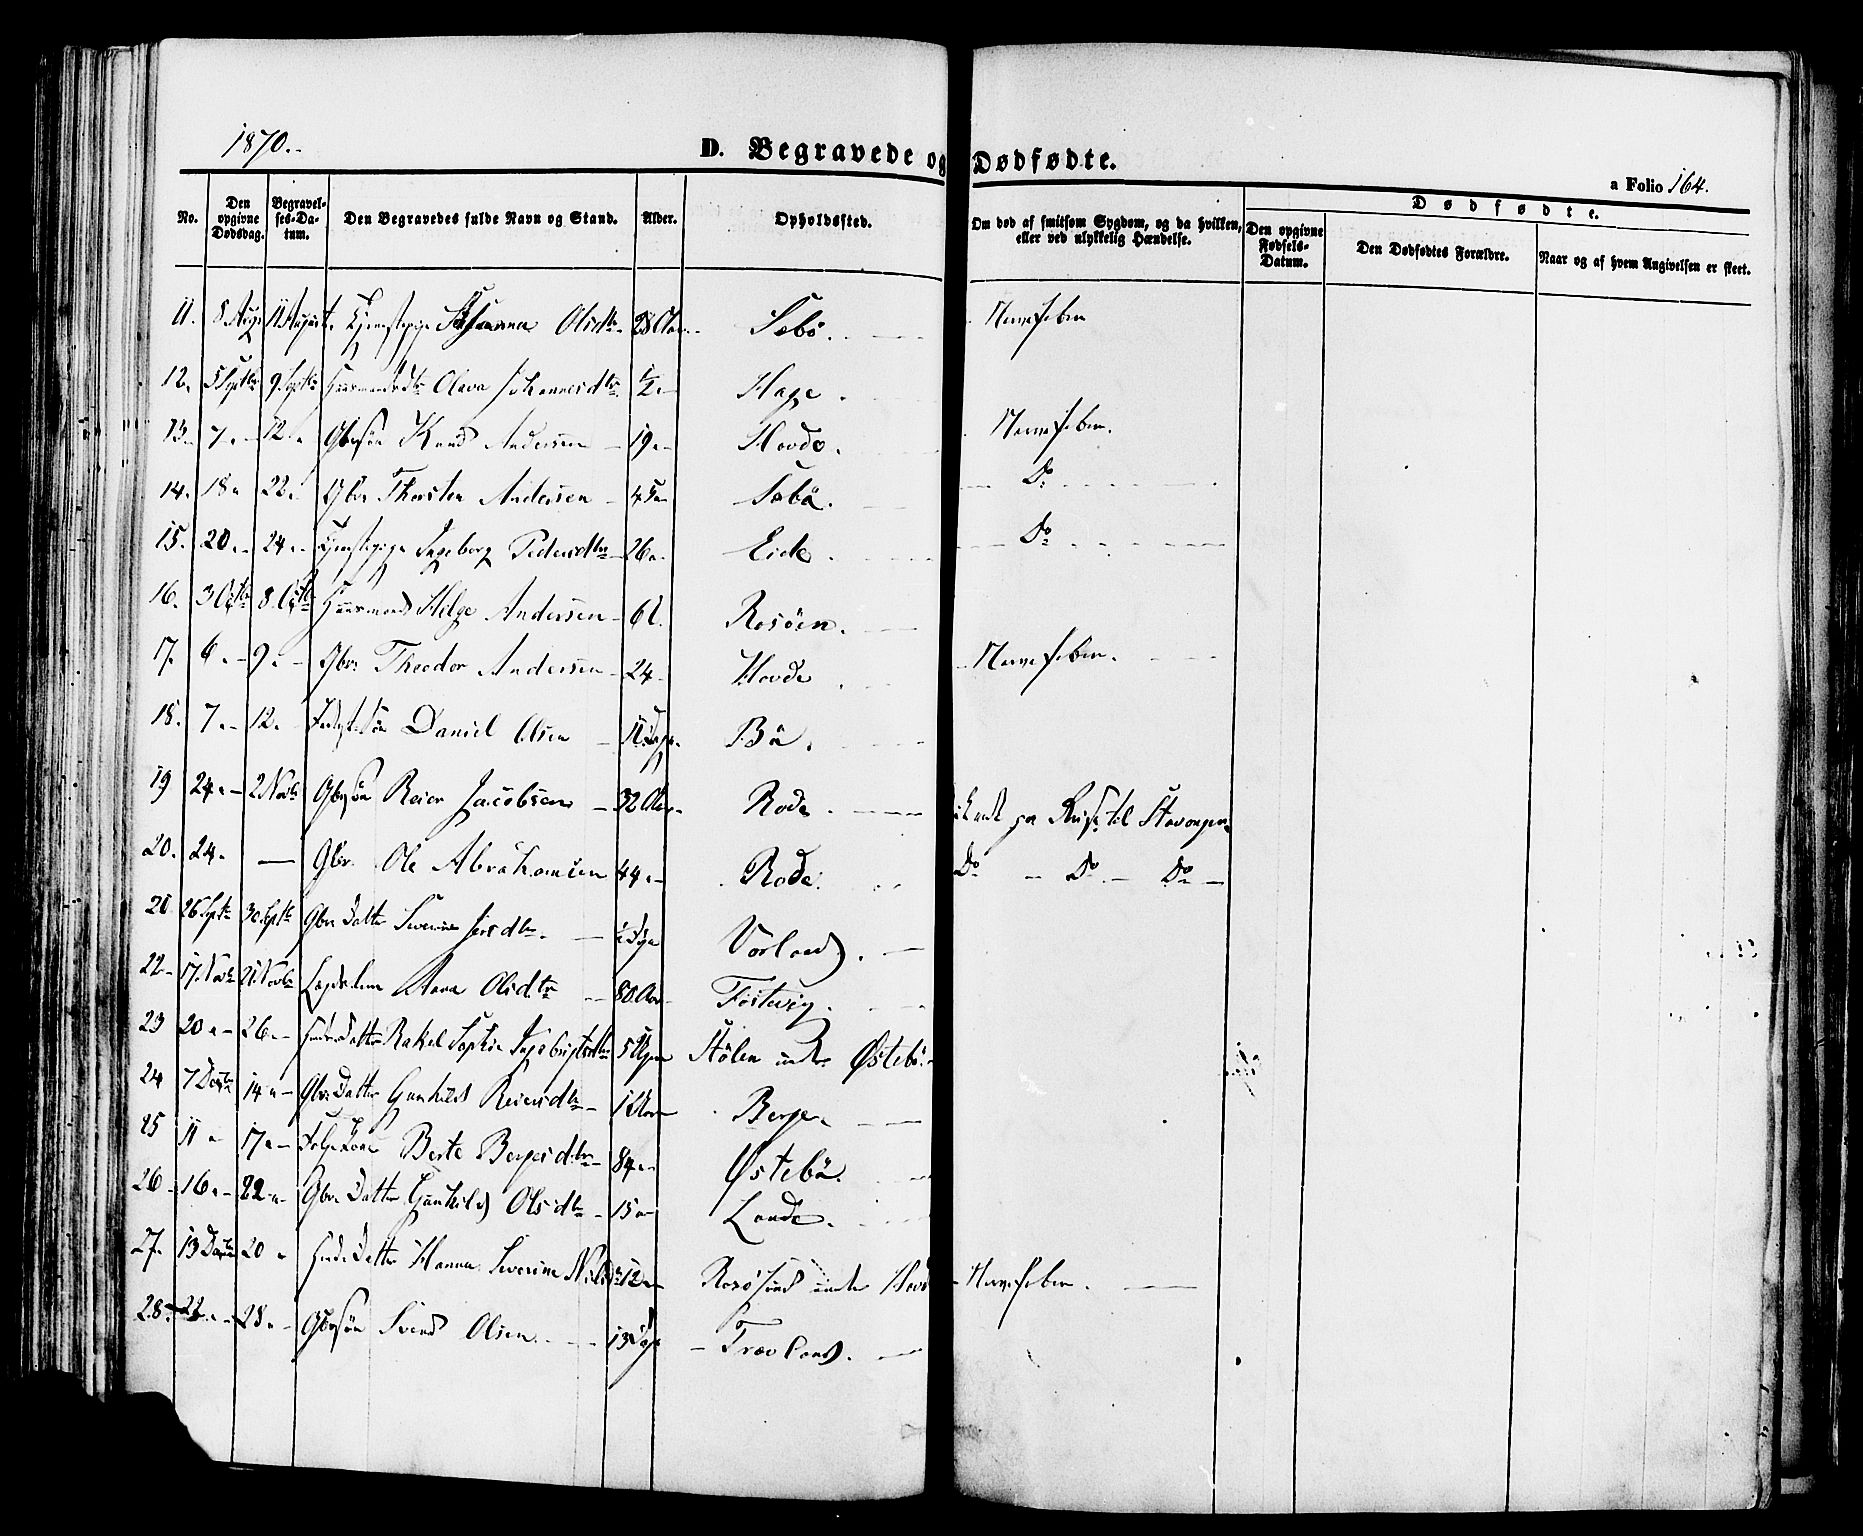 1870.
D. Begravede og Dødfødte.
a Folio 164.
No. Den opgivne Dødsdag. Begravelses-Datum. Den Begravedes fulde Navn og Stand. Alder. Opholdssted. Om død af smitsom Sygdom, og da hvilken, eller ved ulykkelig Hændelse. Dødfødte.
Den opgivne Fødsels-Datum. Den Dødfødtes Forældre. Naar og af hvem Angivelsen er skeet.
11. 8 Aug 11 August Tjenestepige Olsdtr 28 Aar Søbö. Nervefeber
12. 5 Septbr 9 Septbr Huusmandsdtr Olava Johannesdtr ½ Hage
13. 7 12 Gbrsön Knud Andersen 19 Hovde. Nervefeber.
14. 18 22 Gbr. Thorsten Andersen 45 Søbö. Do
15. 20 24 Tjenestepige Ingeborg Pedersdtr 26 Eide. Do
16. 3 Octbr 8 Octbr Huusmand Helge Andersen 61. Rosöen.
17. 6 9 Gbr. Theodor Andersen 24 Hovde Nervefeber.
18. 7 12 sön Daniel Olsen 11 Dage Bö.
19 24 2 Novbr Gbrsön Reier Jacobsen 32 Aar Rode paa Reise til Stavanger
20. 24 — Gbr. Ole Abrahamsen 44 Rode. Do — Do — Do —
26 Septbr 30 Septbr Gbr Datter Severine Dage Vorland.
22 17 Novbr 21 Novbr Anna Olsdtr 80 Aar
23 20 26 Datter Rakel Sophie 5 Uger Stölen under Østebö.
24 7 Decbr 14 Gbr Datter Gunhild Reiersdtr Berge
25 11 17 Berte Bergesdtr 84 Østebö.
26 16 22 Gbr Datter Gunhild Olsdtr 15 Lande.
27. 13 Decbr 20 Datter Hanna Severine 12 Rosösund under Hovd Nervefeber.
28. 22 28 Gbrsön Svend Olsen 13 Dage Trovland.